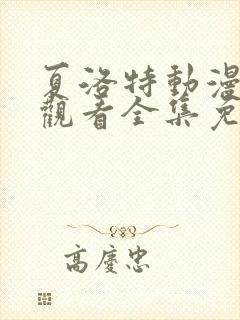 夏洛特動漫
觀看全集免
高慶忠